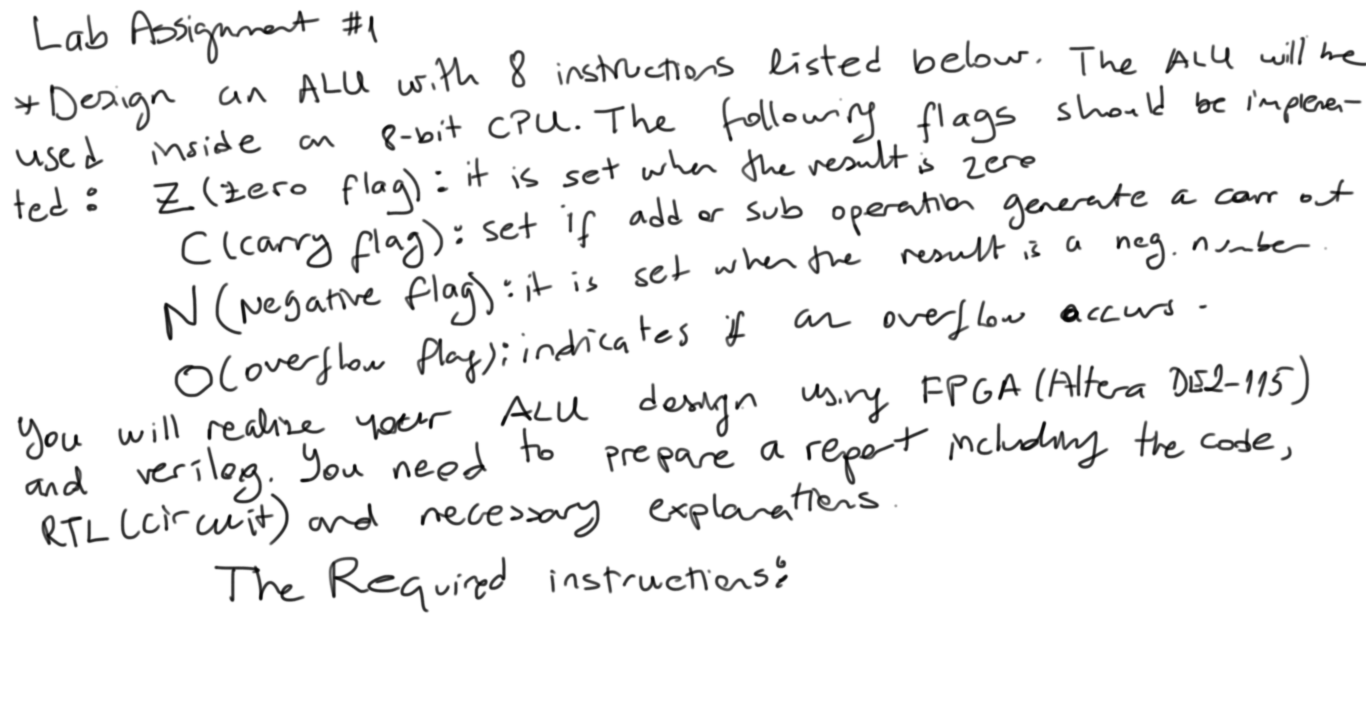 Lab Assignment #1
* Design an ALU with 8 instructions listed below. The ALU will be
used inside an 8-bit CPU. The following flags should be implemen-
ted: Z (zero flag): it is set when the result is zero
C (carry flag): set if add or sub operation generate a carr out
N (Negative flag): it is set when the result is a neg. number.
O (overflow flag): indicates if an overflow accurs.
You will realize your ALU design using FPGA (Altera DE2-115)
and verilog. You need to prepare a report including the code,
RTL (circuit) and necessary explanations.
The Required instructions: